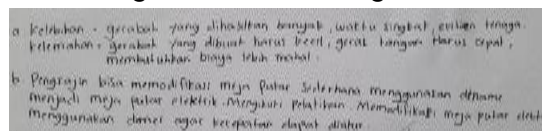 a kelebihan - gerabah yang dihasilkan banyak, waktu singkat, efisien tenaga.
kelemahan - gerabah yang dibuat harus kecil, gerak tangan Harus cepat,
membutuhkan biaya lebih mahal.
b. Pengrajin bisa memodifikasi meja Putar Sederhana menggunakan dinamo
menjadi meja putar elektrik. Mengikuti pelatihan. Memodifikasi meja putar
menggunakan agar kecepatan dapat diatur.